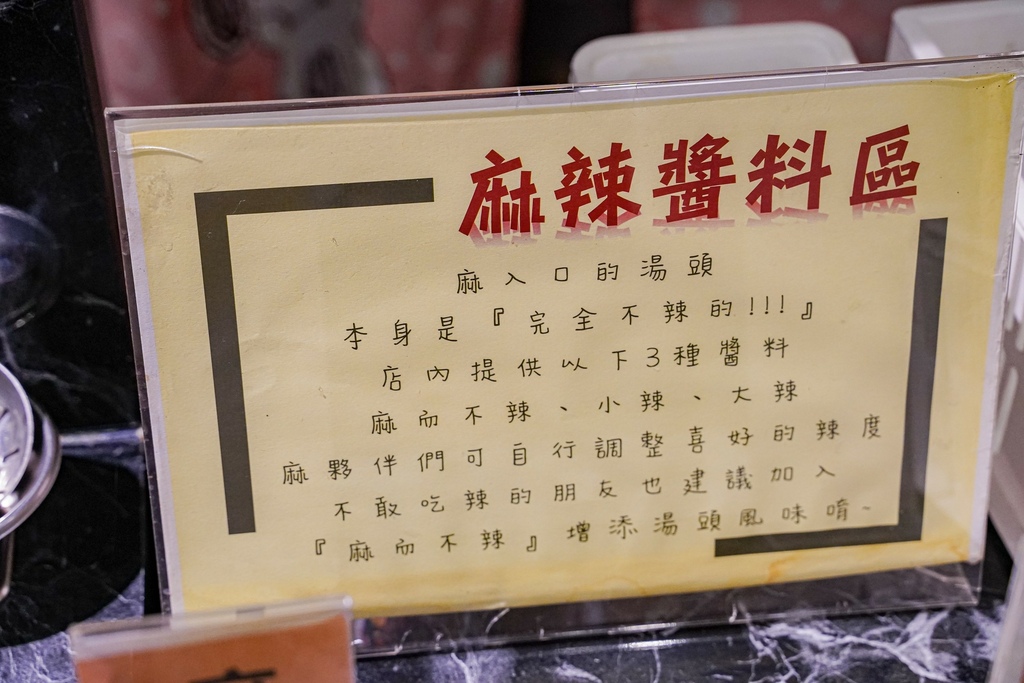 麻辣醬料區
麻入口的湯頭
本身是『完全不辣的!!!』
店內提供以下3種醬料
麻而不辣、小辣、大辣
麻夥伴們可自行調整喜好的辣度
不敢吃辣的朋友也建議加入
『麻而不辣』增添湯頭風味唷~